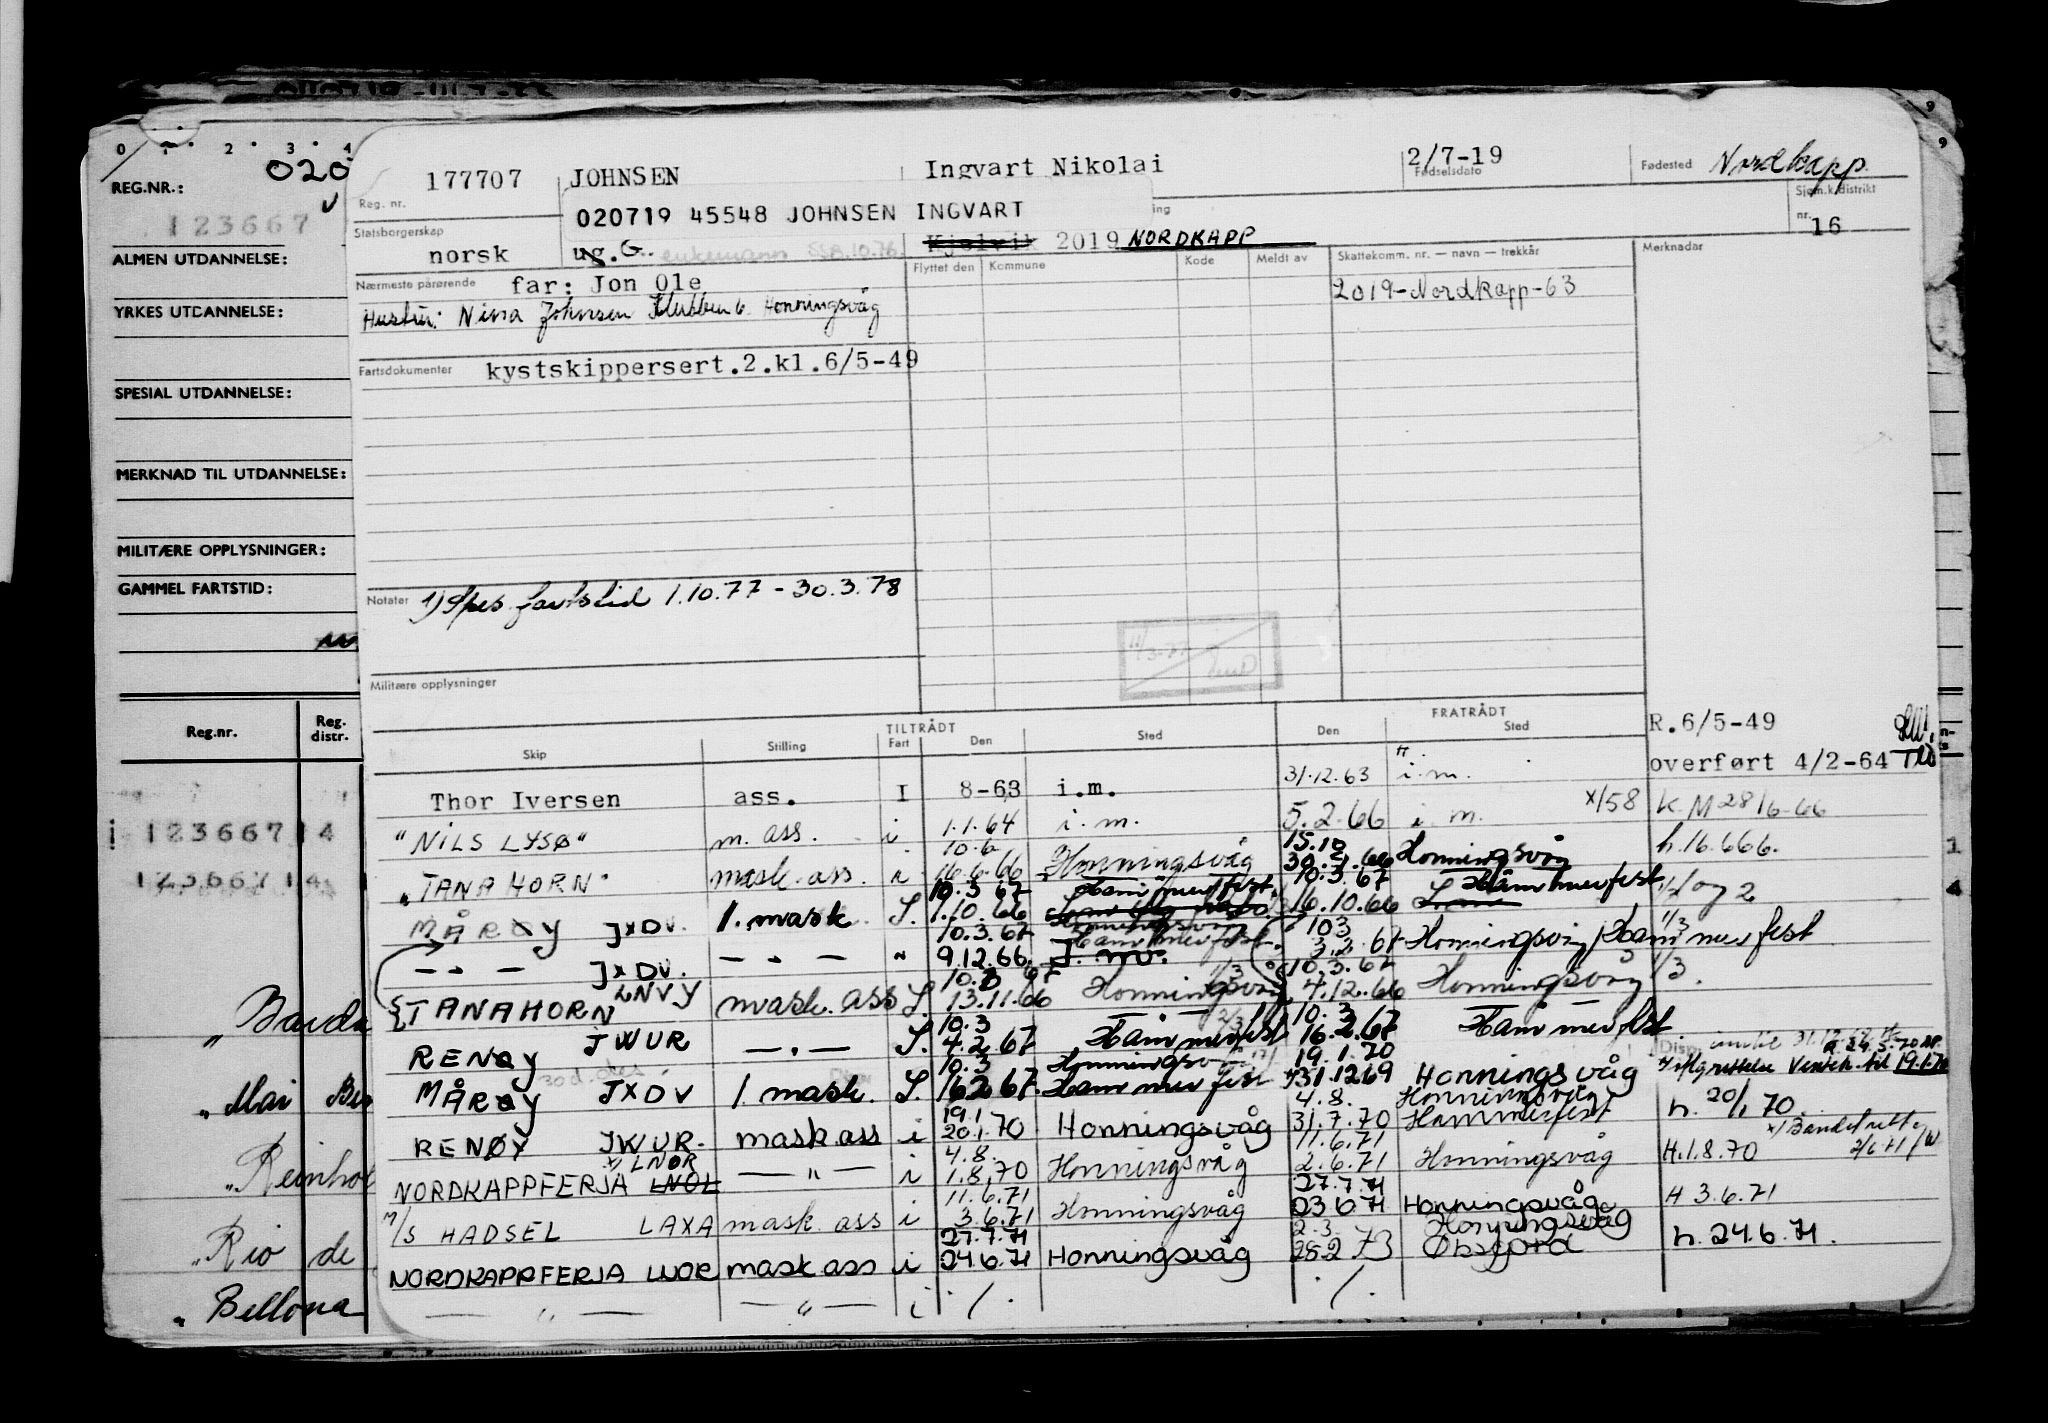 0 1 2 3 4
020
REG.NR.:
123667
ALMEN UTDANNELSE:
YRKES UTDANNELSE:
SPESIAL UTDANNELSE:
MERKNAD TIL UTDANNELSE:
MILITÆRE OPPLYSNINGER:
GAMMEL FARTSTID:
Reg.nr. Reg. distr.
123667 14
123667 14
" Mai
" Rio de
" Bellona
177707 JOHNSEN Ingvart Nikolai 2/7-19 Fødested Nordkapp.
Reg. nr. Fødselsdato Sjøm.k.distrikt
020719 45548 JOHNSEN INGVART
nr. 16
Statsborgerskap
norsk ug. G. enkemann SSB.10.76 Kjelvik 2019 NORDKAPP
Flyttet den Kommune Kode Meldt av Skattekomm. nr. — navn — trekkår Merknader
Nærmeste pårørende far: Jon Ole
2019-Nordkapp-63
Hustru: Nina Johnsen Klubben 6. Honningsvåg
Fartsdokumenter kystskippersert.2.kl.6/5-49
Notater 1) Spes. fartstid 1.10.77 - 30.3.78
Militære opplysninger
TILTRÅDT FRATRÅDT
Skip Stilling Fart Den Sted Den Sted
R.6/5-49
overført 4/2-64
Thor Iversen ass. I 8-63 i.m. 31.12.63 i.m.
"NILS LYSØ" m. ass. i 1.1.64 i.m. 5.2.66 i.m. x/58 K.M 28/6-66
"TANAHORN" mask. ass. i 10.6 16.6.66 Honningsvåg 15.10 30.9.66 Honningsvåg h.16.6.66.
MÅRØY JXDV. 1. mask. S. 10.3.67 1.10.66 Hammerfest 10.3.67 16.10.66 Hammerfest 1/ og 2
— " — JXDV. — " — " 10.3.67 9.12.66. Hammerfest 10.3 3.2.67 Honningsvåg Hammerfest 1/3
TANAHORN LNVY mask. ass S. 10.3.67 13.11.66 Honningsvåg 1/3 10.3.67 4.12.66 Honningsvåg 1/3.
RENØY JWUR — " — S. 10.3 4.2.67 Hammerfest 2/3 10.3 16.2.67 Hammerfest
MÅRØY JXDV 1. mask. S. 10.3 16.2.67. Honningsvåg Hammerfest 19.1.70 31.12.69 Honningsvåg til 19.1.70
RENØY JWUR. mask ass i 19.1 20.1.70 Honningsvåg 4.8. 31.7.70 Honningsvåg Hammerfest h. 20/1 70.
NORDKAPPFERJA x) LNOR LNOL — " — i 4.8. 1.8.70 Honningsvåg 11.6.71 2.6.71 Honningsvåg H.1.8.70
M/S HADSEL LAXA mask. ass i 11.6.71 3.6.71 Honningsvåg 27.7.71 23.6.71 Honningsvåg H 3.6.71
NORDKAPPFERJA LNOR mask ass i 27.7.71 24.6.71 Honningsvåg 2.3. 28.2.73 Honningsvåg h. 24.6.71.
— " — — " — i ./. ./.